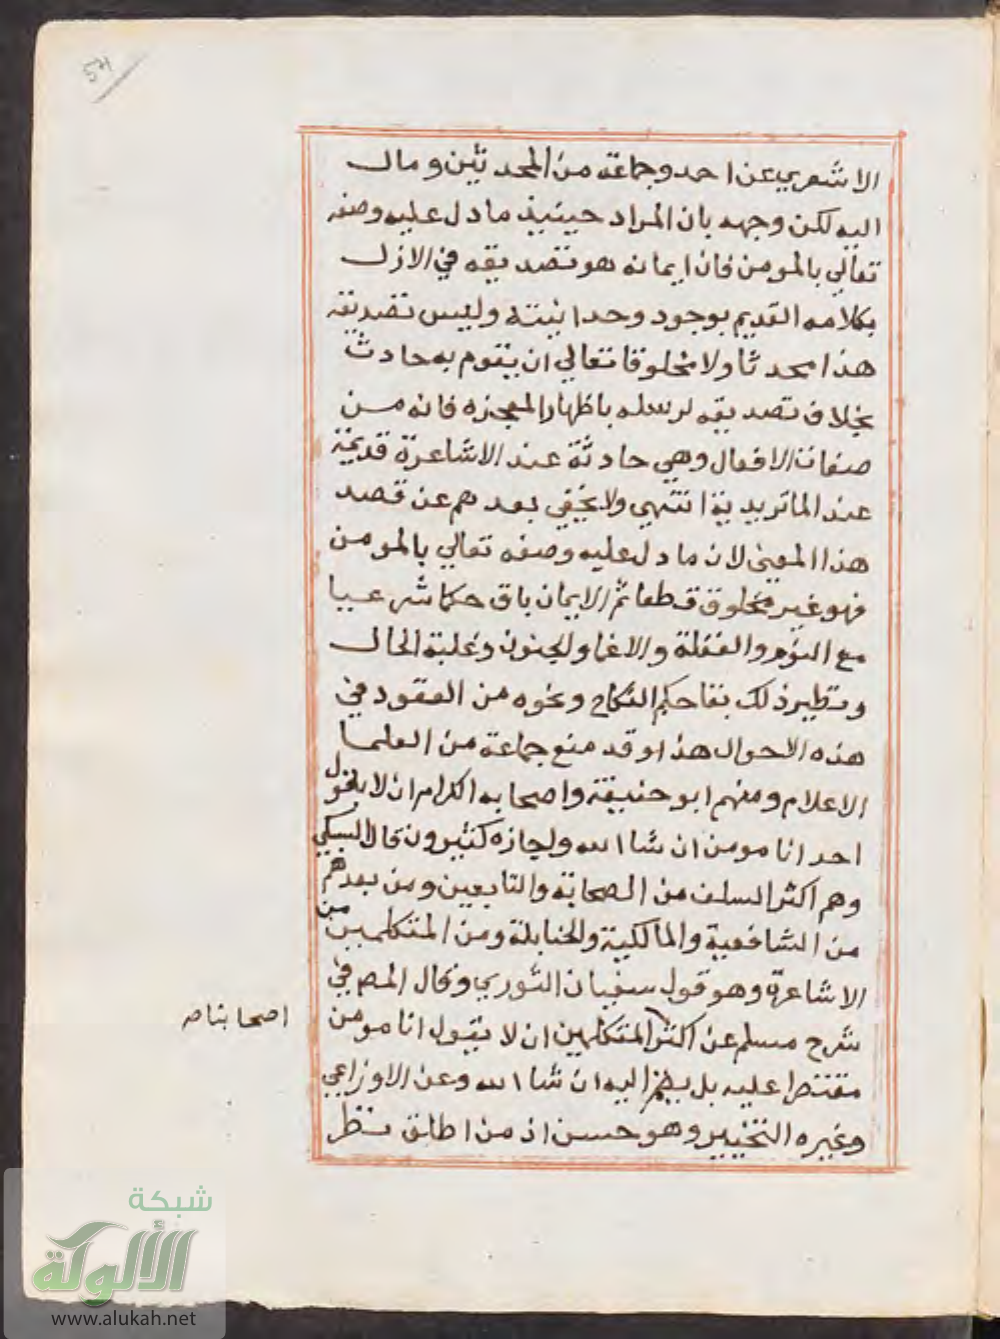 54
الاشعري عن احمد وجماعة من المحدثين ومال
اليه لكن وجهه بان المراد حينيذ مادل عليه وصفه
تعالي بالمومن فان ايمانه هو تصديقه في الازل
بكلامه القديم بوجود وحدانيته وليس تصديقه
هذا محدثا ولا مخلوقا تعالي ان يقوم به حادث
بخلاف تصديقه لرسله باظهار المعجزه فانه من
صفات الافعال وهي حادثة عند الاشاعرة قديمة
عند الماتريدية انتهي ولا يخفي بعدهم عن قصد
هذا المعني لان مادل عليه وصفه تعالي بالمومن
فهو غير مخلوق قطعا ثم الايمان باق حكما شرعيا
مع النوم والغفلة والاغما والجنون وغلبة الحال
ونظير ذلك بقا حكم النكاح ونحوه من العقود في
هذه الاحوال هذا وقد منع جماعة من العلما
الاعلام ومنهم ابو حنيفة واصحابه الكرام ان لا يقول
احد انا مومن ان شا الله واجازه كثيرون قال السبكي
وهم اكثر السلف من الصحابة والتابعين ومن بعدهم
من الشافعية والمالكية والحنابلة ومن المتكلمين من
الاشاعرة وهو قول سفيان الثوري وقال المص في
شرح مسلم عن اكثر المتكلمين ان لا يقول انا مومن
اصحابنا صه
مقتصرا عليه بل يضم اليه ان شا الله وعن الاوزاعي
وغيره التخيير وهو حسن اذ من اطلق نظر
شبكة
الألوكة
www.alukah.net